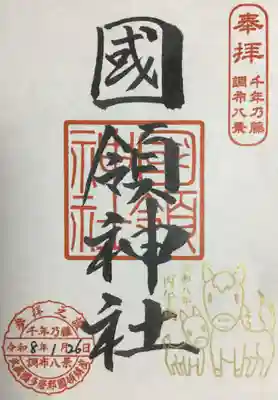 奉拝
千年乃藤
調布八景
國領神社
國領
神社
参拝之証
千年乃藤
令和8年1月26日
調布八景
令和八年
丙午